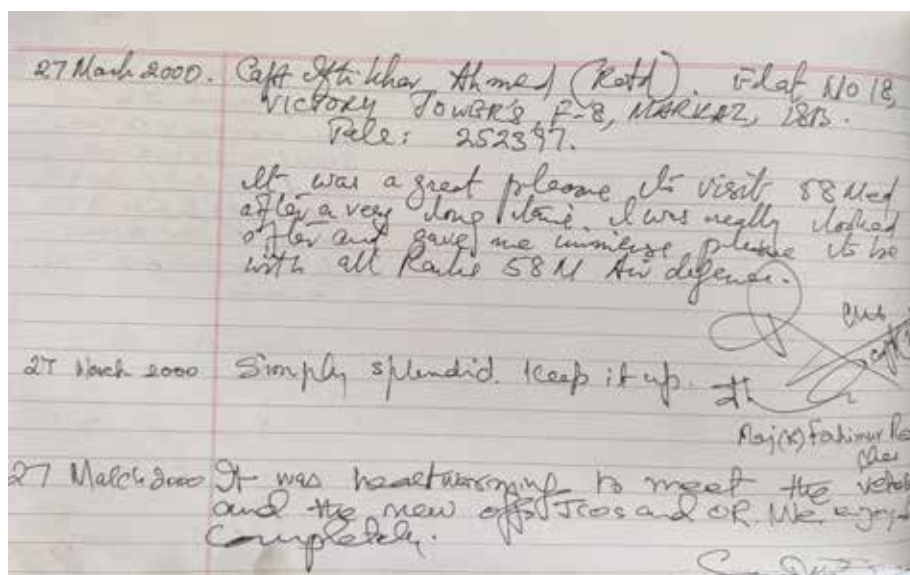 27 March 2000. Capt Iftikhar Ahmed (Retd). Flat No 18,
VICTORY TOWER'S, F-8, MARKAZ, ISB.
Tele: 252397.
It was a great pleasure to visit 58 Med
after a very long time. I was really looked
after and gave me immense pleasure to be
with all Ranks 58 M Air defence.
27 March 2000 Simply splendid. Keep it up.
Maj(R) Fahimur
27 March 2000 It was heartwarming to meet the
and the new offs JCOs and OR. We enjoyed
Completely.